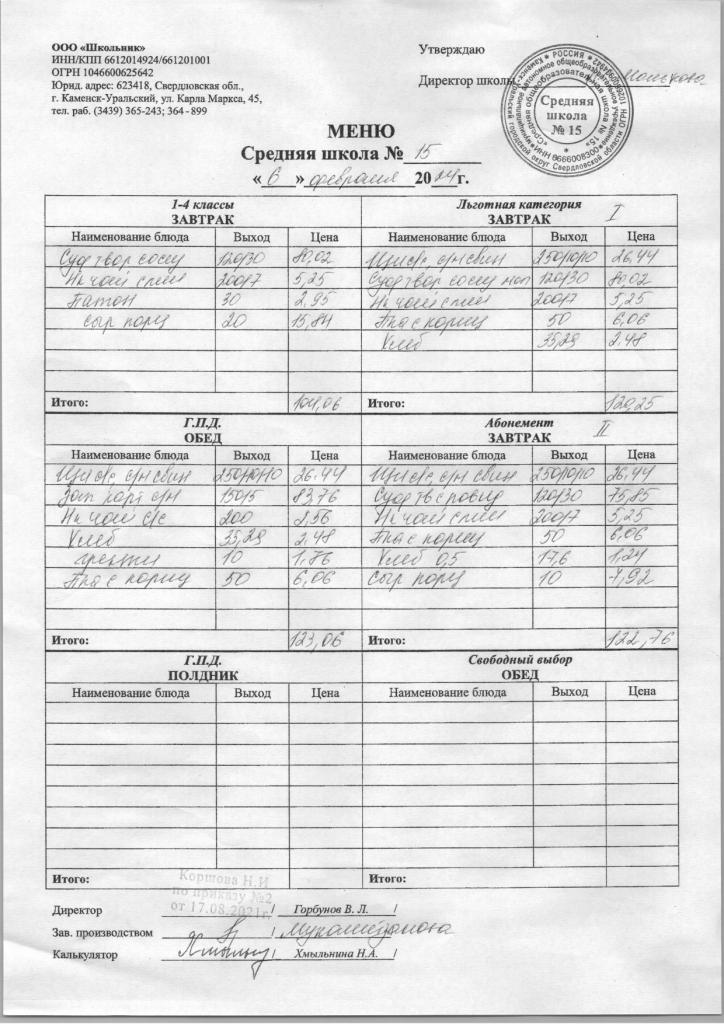 ООО «Школьник»
ИНН/КПП 6612014924/661201001
ОГРН 1046600625642
Юрид. адрес: 623418, Свердловская обл.,
г. Каменск-Уральский, ул. Карла Маркса, 45,
тел. раб. (3439) 365-243; 364 - 899
Утверждаю
Директор школы
Средняя
школа
№ 15
МЕНЮ
Средняя школа № 15
« 6 » февраля 2024г.
1-4 классы
ЗАВТРАК
Наименование блюда Выход Цена
Суд твор сосиу 120/30 80,02
Нк чай слим 200/7 5,25
Батон 30 2,95
сыр порц 20 15,84
Итого: 104,06
Льготная категория I
ЗАВТРАК
Наименование блюда Выход Цена
250/10/10 26,44
120/30 80,02
Нк чай слим 200/7 5,25
50 6,06
Хлеб 35,29 2.48
Итого: 120,25
Г.П.Д.
ОБЕД
Наименование блюда Выход Цена
250/10/10 26.44
150/5 83,76
Нк чай с/с 200 2,56
Хлеб 35,29 2.48
гренки 10 1,76
50 6,06
Итого: 123,06
Абонемент II
ЗАВТРАК
Наименование блюда Выход Цена
250/10/10 26,44
120/30 75,85
Нк чай слим 200/7 5,25
50 6,06
Хлеб 0,5 17,6 1,24
сыр порц 10 7,92
Итого: 122,76
Г.П.Д.
ПОЛДНИК
Наименование блюда Выход Цена
Итого:
Свободный выбор
ОБЕД
Наименование блюда Выход Цена
Итого:
Коршова Н.И
по приказу №2
от 17.08.2021г.
Директор / Горбунов В. Л. /
Зав. производством / /
Калькулятор / Хмыльнина Н.А. /